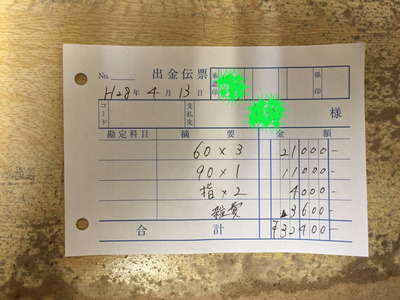 No. 出金伝票 承認印 係印
H28年 4月 13日
コード 支払先 様
勘定科目 摘要 金額
60×3 21000-
90×1 11000-
指×2 4000-
雑費 ▲3600-
合計 ¥32400-